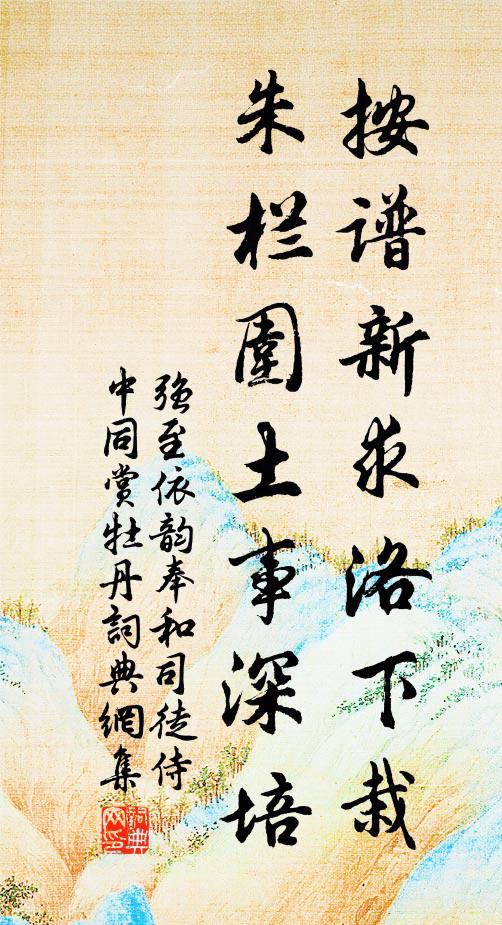 按谱新求洛下栽
朱栏围土事深培
强至依韵奉和司徒侍
中同赏牡丹詞典網集
詞典
网印